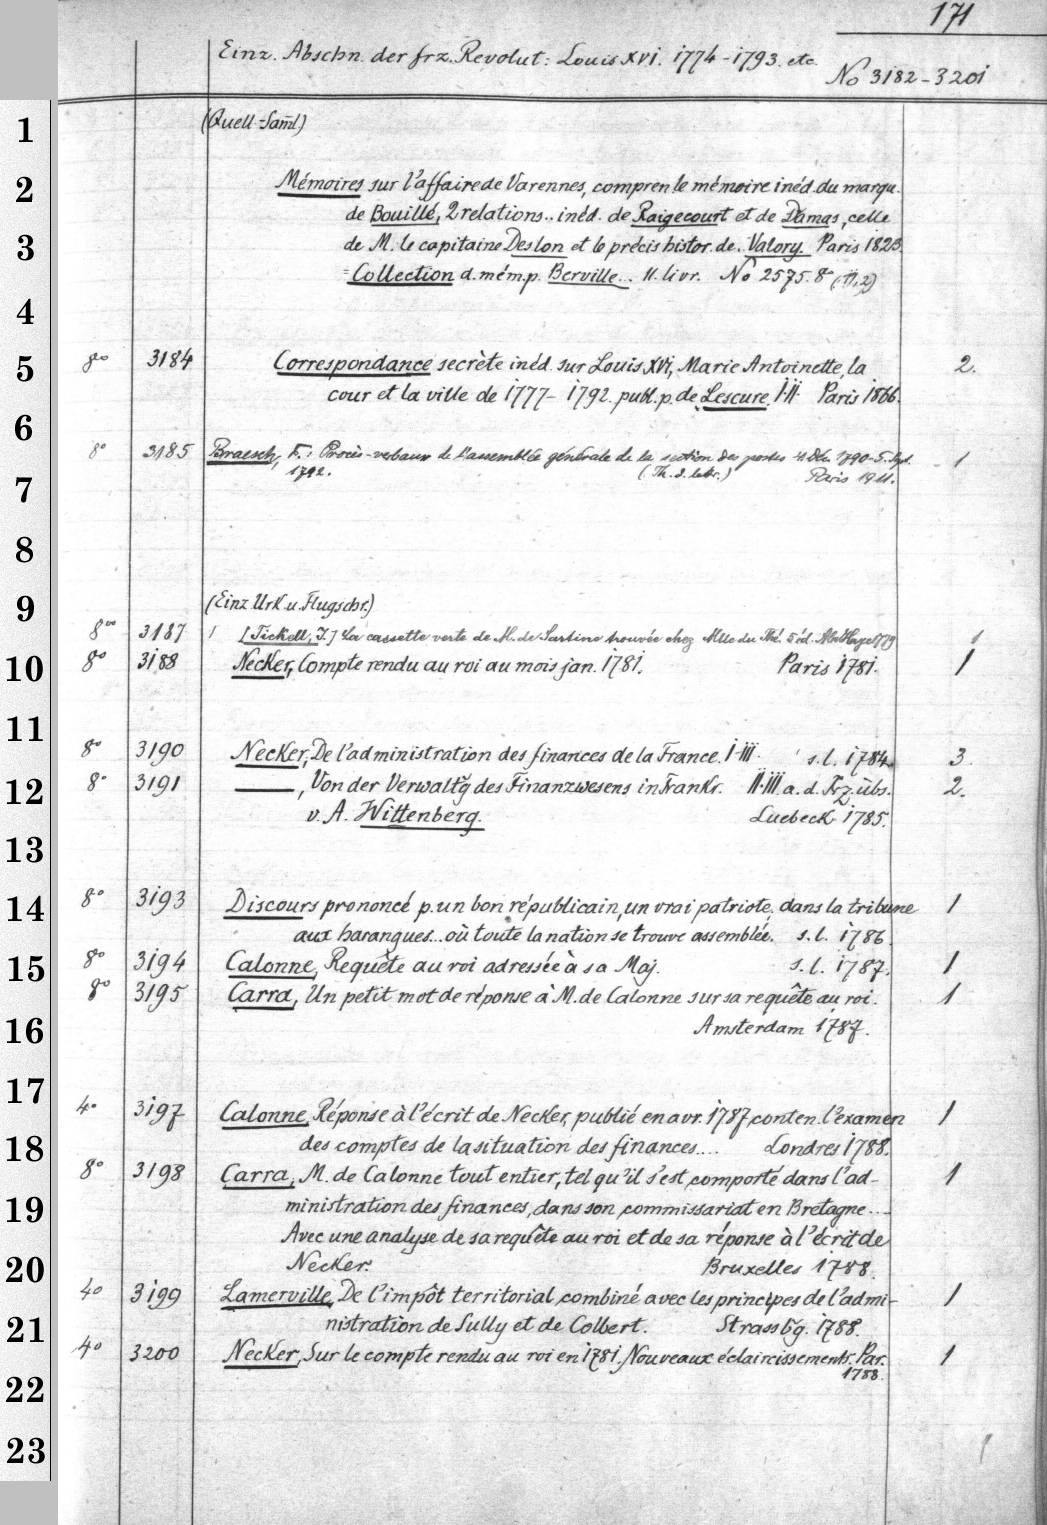 171
Einz. Abschn. der frz. Revolut: Louis XVI. 1774-1793. etc.
No 3182-3201
1
(Quell-Saml)
2
Mémoires sur l'affaire de Varennes, compren le mémoire inéd. du marqu.
de Bouillé, 2 relations.. inéd. de Raigecourt et de Damas, celle
3
de M. le capitaine Deslon et le précis histor. de. Valory. Paris 1823.
= Collection d. mém. p. Berville... 11. livr. No 2575. 8° (11,2)
4
5
8° 3184 Correspondance secrète inéd. sur Louis XVI, Marie Antoinette, la 2.
cour et la ville de 1777-1792. publ. p. de Lescure. I-II. Paris 1866.
6
8° 3185 Braesch, F.: Procès-verbaux de l'assemblée générale de la section des postes 4 Déc. 1790-5. Sept. 1
1792. (Th. d. lettr.) Paris 1911.
7
8
9
(Einz Urk. u. Flugschr.)
8vo 3187 1 [Tickell, J.] La cassette verte de M. de Sartine trouvée chez Mlle du Thé. 5 éd. La Haye 1779 1
10
8° 3188 Necker, Compte rendu au roi au mois jan. 1781. Paris 1781. 1
11
8° 3190 Necker, De l'administration des finances de la France. I-III. s.l. 1784. 3.
12
8° 3191 ——, Von der Verwaltg des Finanzwesens in Frankr. II-III. a. d. Frz. übs. 2.
v. A. Wittenberg. Luebeck 1785.
13
14
8° 3193 Discours prononcé p. un bon républicain, un vrai patriote. dans la tribune 1
aux harangues... où toute la nation se trouve assemblée. s.l. 1786.
15
8° 3194 Calonne, Requête au roi adressée à sa Maj. s.l. 1787. 1
8° 3195 Carra, Un petit mot de réponse à M. de Calonne sur sa requête au roi. 1
16
Amsterdam 1787.
17
4° 3197 Calonne, Réponse à l'écrit de Necker, publié en avr. 1787, conten. l'examen 1
18
des comptes de la situation des finances.... Londres 1788.
8° 3198 Carra, M. de Calonne tout entier, tel qu'il s'est comporté dans l'ad- 1
19
ministration des finances, dans son commissariat en Bretagne...
Avec une analyse de sa requête au roi et de sa réponse à l'écrit de
20
Necker. Bruxelles 1788.
4° 3199 Lamerville, De l'impôt territorial combiné avec les principes de l'admi- 1
21
nistration de Sully et de Colbert. Strassbg. 1788.
4° 3200 Necker, Sur le compte rendu au roi en 1781. Nouveaux éclaircissements. Par. 1
1788.
22
23